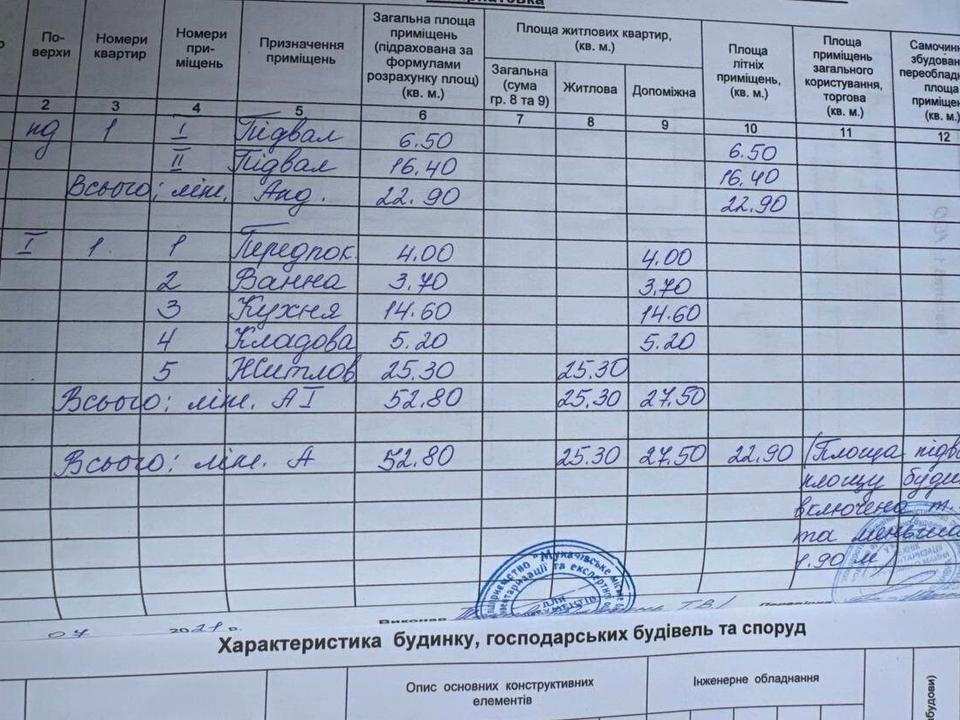 По-
верхи
Номери
квартир
Номери
при-
міщень
Призначення
приміщень
Загальна площа
приміщень
(підрахована за
формулами
розрахунку площ)
(кв. м.)
Площа житлових квартир,
(кв. м.)
Загальна
(сума
гр. 8 та 9)
Житлова
Допоміжна
Площа
літніх
приміщень,
(кв. м.)
Площа
приміщень
загального
користування,
торгова
(кв. м.)
Самочинн
збудован
переобладн
площа
приміщен
(кв. м.)
2 3 4 5 6 7 8 9 10 11 12
пд 1 I Підвал 6.50 6.50
II Підвал 16.40 16.40
Всього: літ. Апд. 22.90 22.90
I 1. 1 Передпок 4.00 4.00
2 Ванна 3.70 3.70
3 Кухня 14.60 14.60
4 Кладова 5.20 5.20
5 Житлов 25.30 25.30
Всього: літ. А I 52.80 25.30 27.50
Всього: літ. А 52.80 25.30 27.50 22.90 (Площа підв
площу буди
включена т.
та меньше
1.90 м)
"Мукачівське міс
для
07 2021 р. Виконав Т.В./
Характеристика будинку, господарських будівель та споруд
Опис основних конструктивних
елементів
Інженерне обладнання